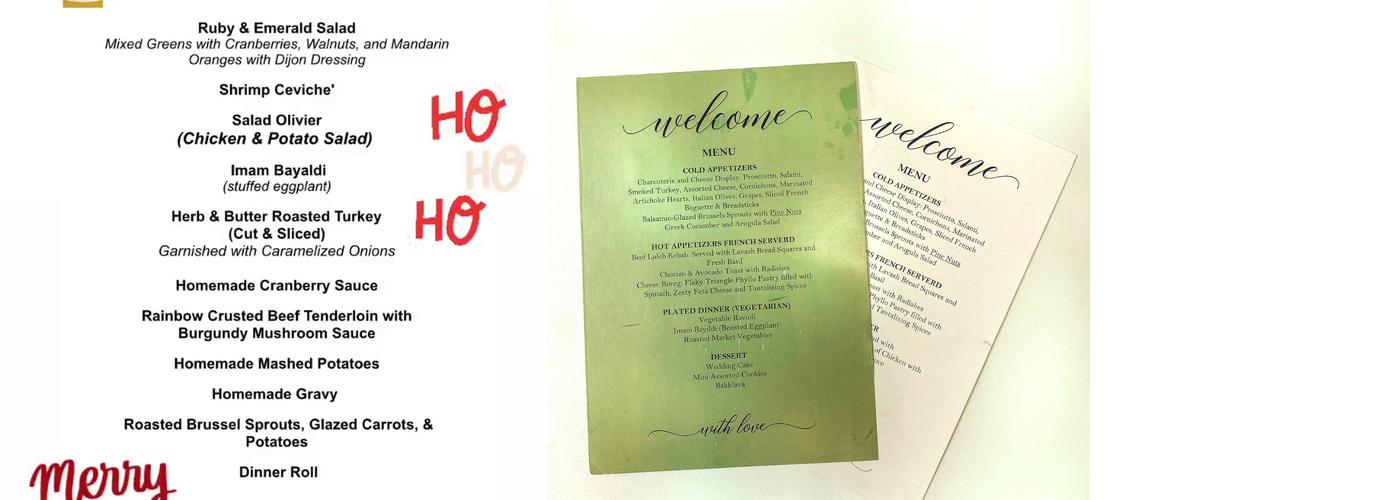 Ruby & Emerald Salad
Mixed Greens with Cranberries, Walnuts, and Mandarin
Oranges with Dijon Dressing
Shrimp Ceviche'
Salad Olivier
(Chicken & Potato Salad)
Imam Bayaldi
(stuffed eggplant)
Herb & Butter Roasted Turkey
(Cut & Sliced)
Garnished with Caramelized Onions
Homemade Cranberry Sauce
Rainbow Crusted Beef Tenderloin with
Burgundy Mushroom Sauce
Homemade Mashed Potatoes
Homemade Gravy
Roasted Brussel Sprouts, Glazed Carrots, &
Potatoes
Dinner Roll
HO
HO
HO
Merry
welcome
MENU
COLD APPETIZERS
Charcuterie and Cheese Display: Prosciutto, Salami,
Smoked Turkey, Assorted Cheese, Cornichons, Marinated
Artichoke Hearts, Italian Olives, Grapes, Sliced French
Baguette & Breadsticks
Balsamic-Glazed Brussels Sprouts with Pine Nuts
Greek Cucumber and Arugula Salad
HOT APPETIZERS FRENCH SERVERD
Beef Luleh Kebab: Served with Lavash Bread Squares and
Fresh Basil
Chorizo & Avocado Toast with Radishes
Cheese Boreg: Flaky Triangle Phyllo Pastry filled with
Spinach, Zesty Feta Cheese and Tantalizing Spices
PLATED DINNER (VEGETARIAN)
Vegetable Ravioli
Imam Bayildi (Roasted Eggplant)
Roasted Market Vegetables
DESSERT
Wedding Cake
Mini Assorted Cookies
Bakhlava
with love
welcome
MENU
COLD APPETIZERS
and Cheese Display: Prosciutto, Salami,
Assorted Cheese, Cornichons, Marinated
Italian Olives, Grapes, Sliced French
& Breadsticks
Brussels Sprouts with Pine Nuts
and Arugula Salad
FRENCH SERVERD
with Lavash Bread Squares and
Basil
Toast with Radishes
Phyllo Pastry filled with
Tantalizing Spices
with
of Chicken with